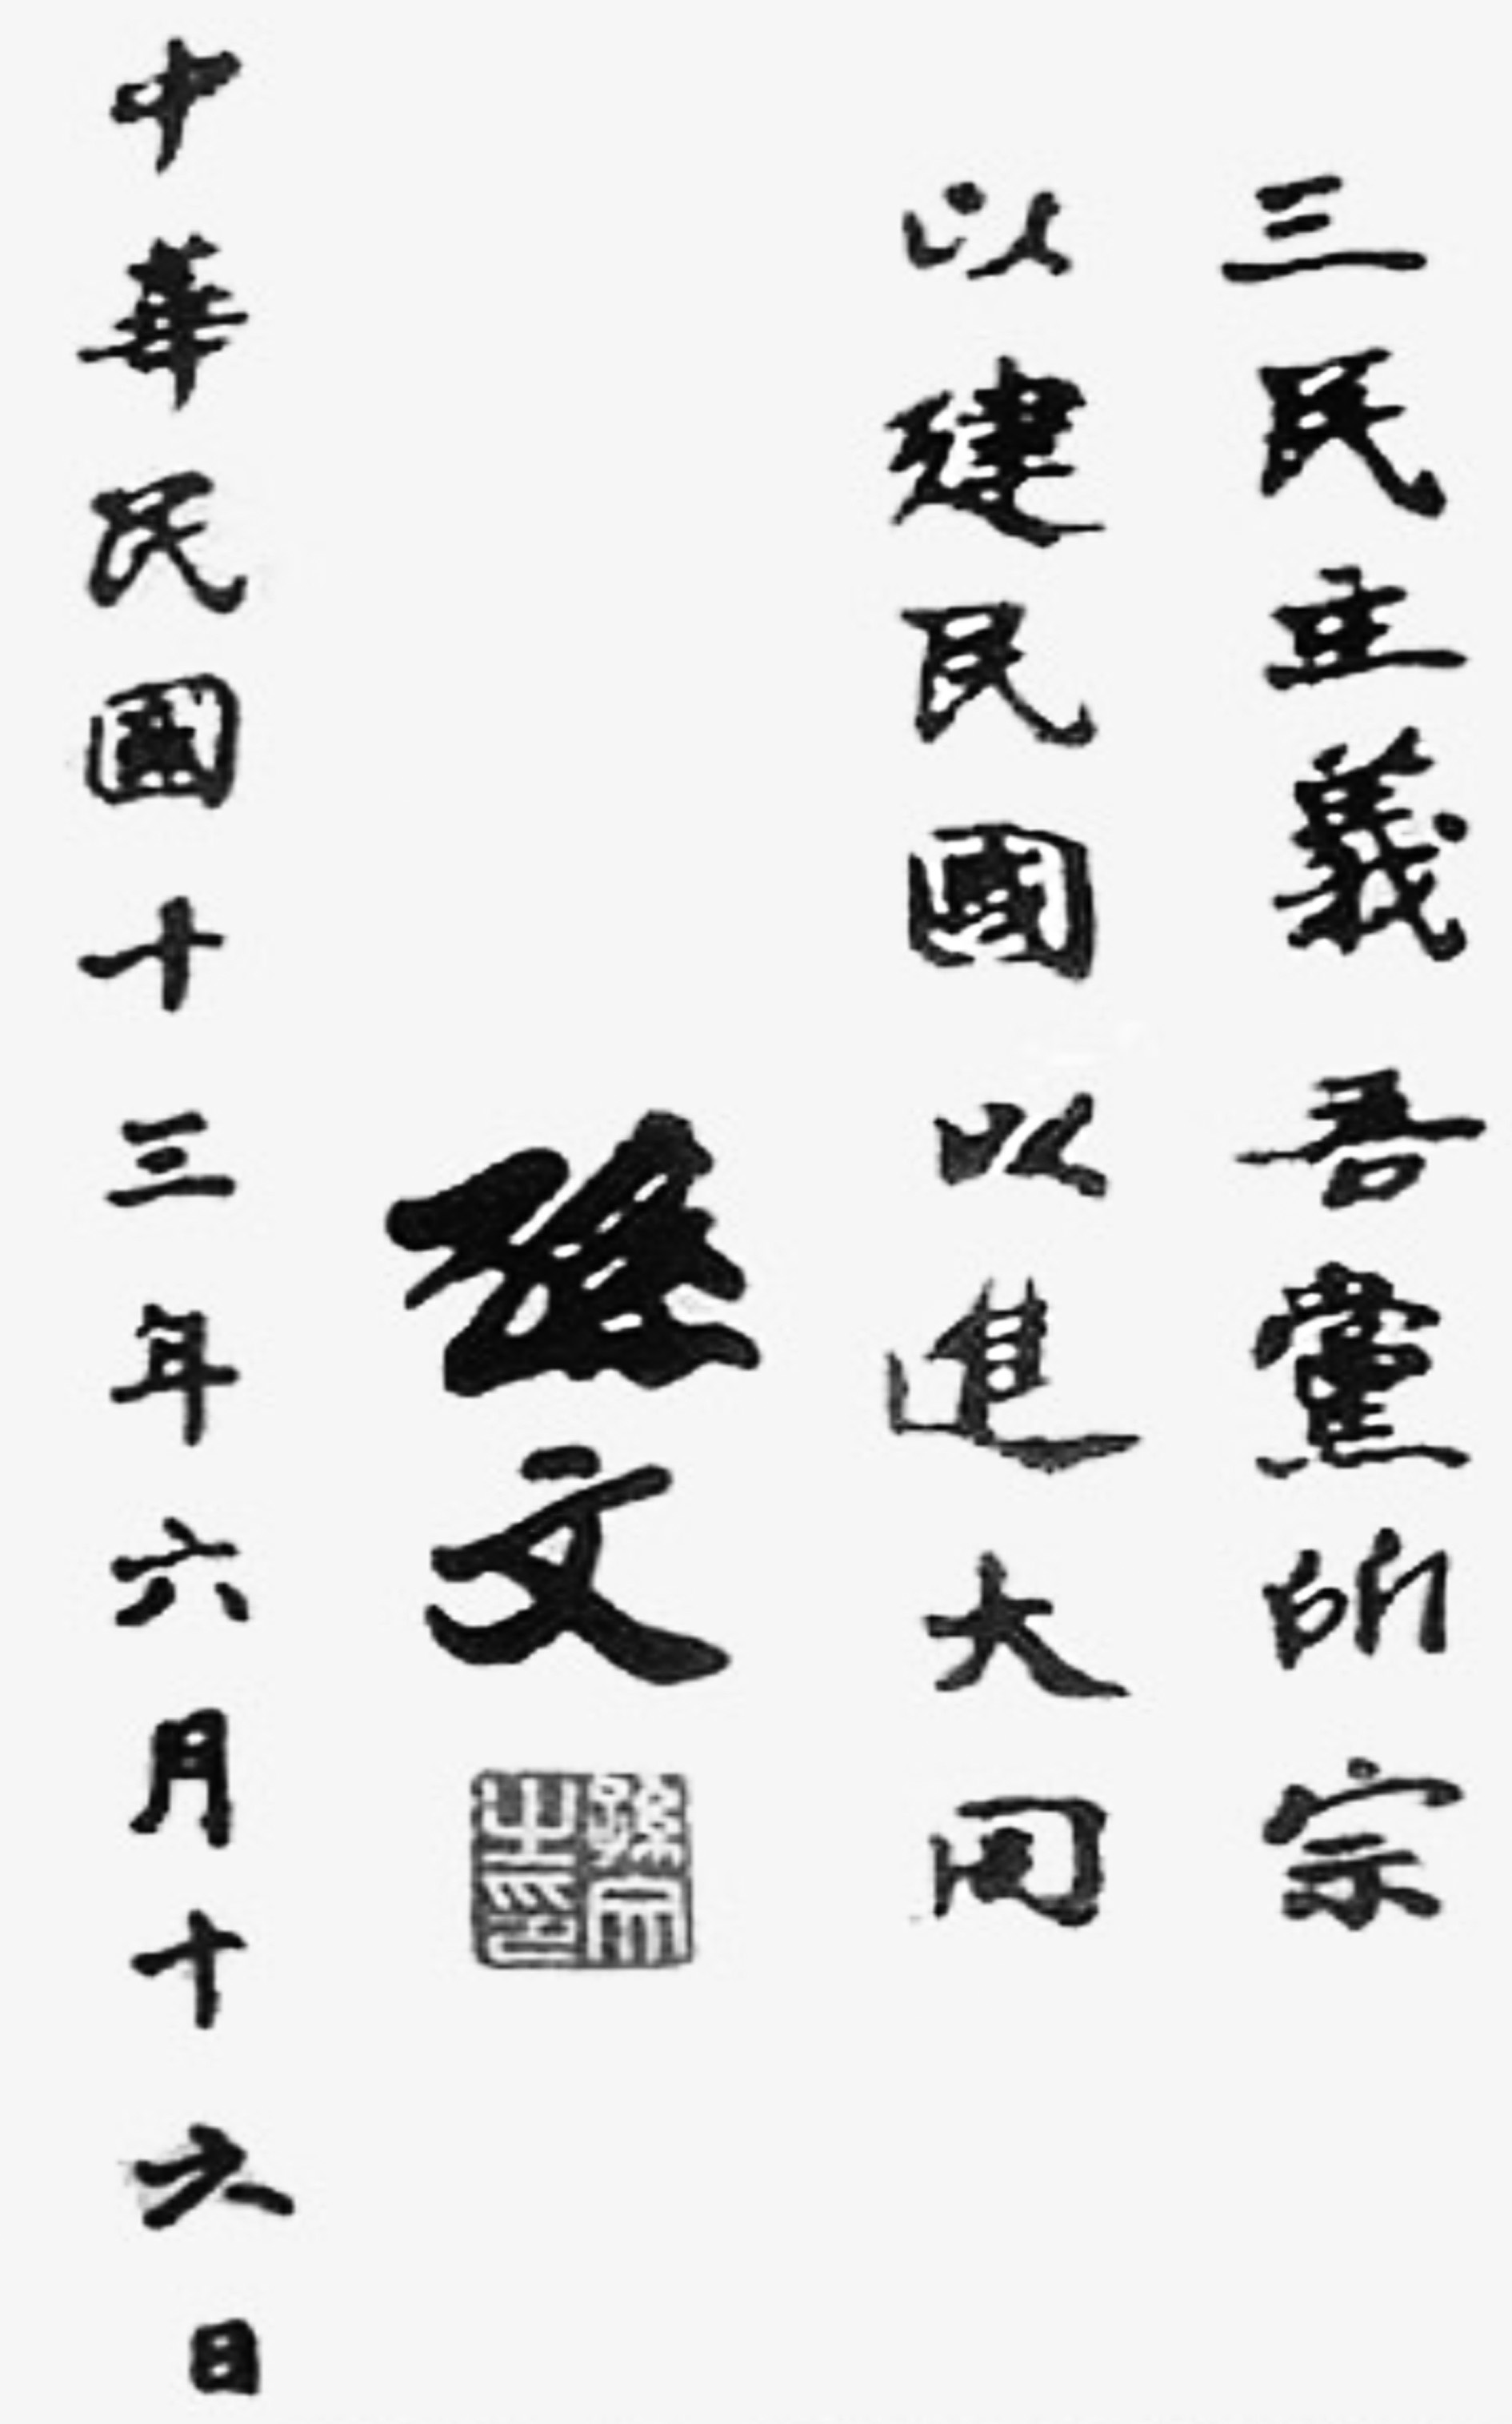 三民主義吾黨所宗
以建民國以進大同
孫文
孫文之印
中華民國十三年六月十六日